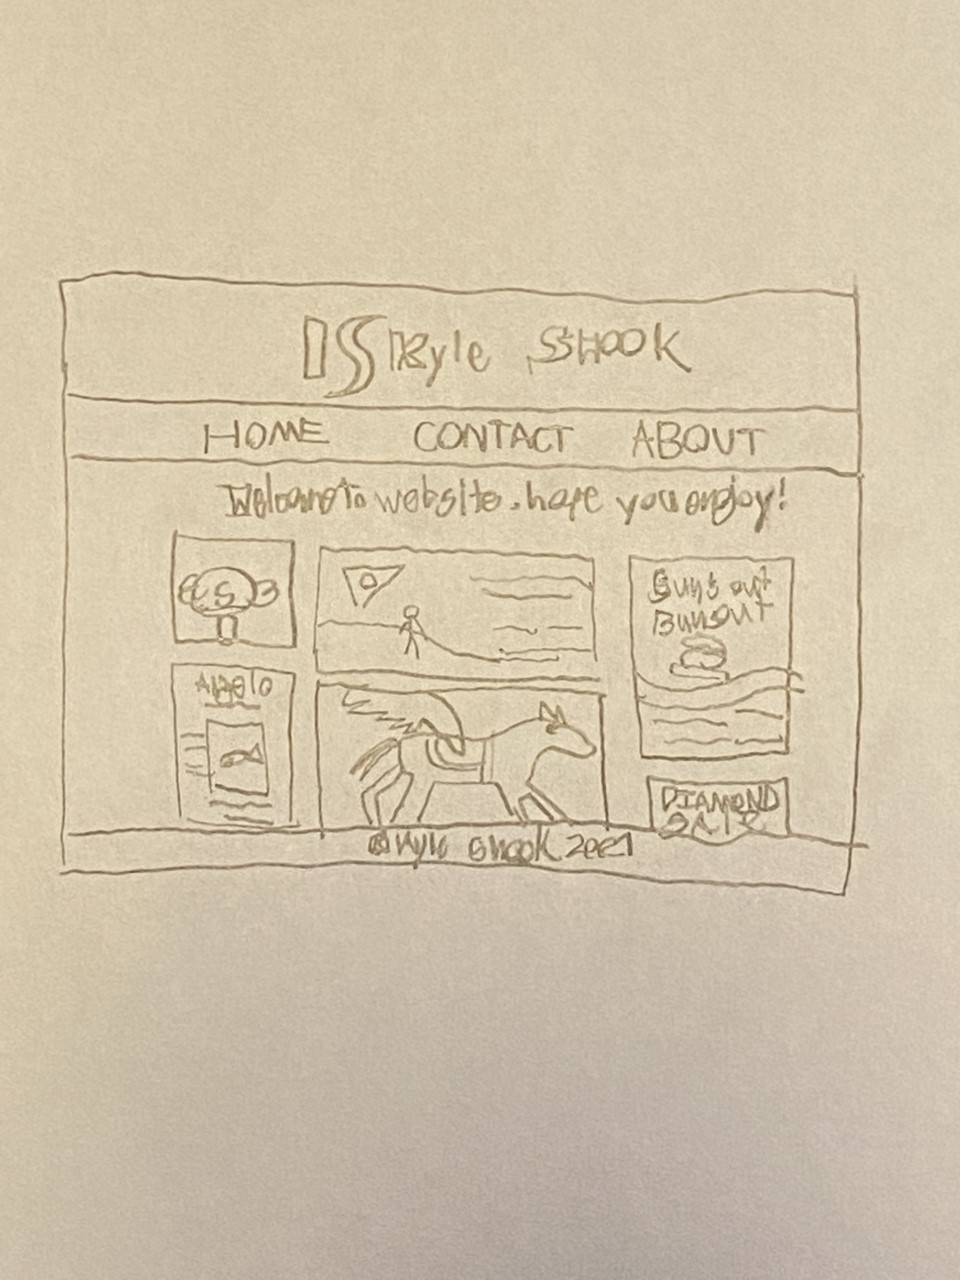 Kyle SHOOK
HOME CONTACT ABOUT
Welcome to website, hope you enjoy!
S
Angelo
Sun's out
Bunsout
DIAMOND
© Kyle Shook 2021